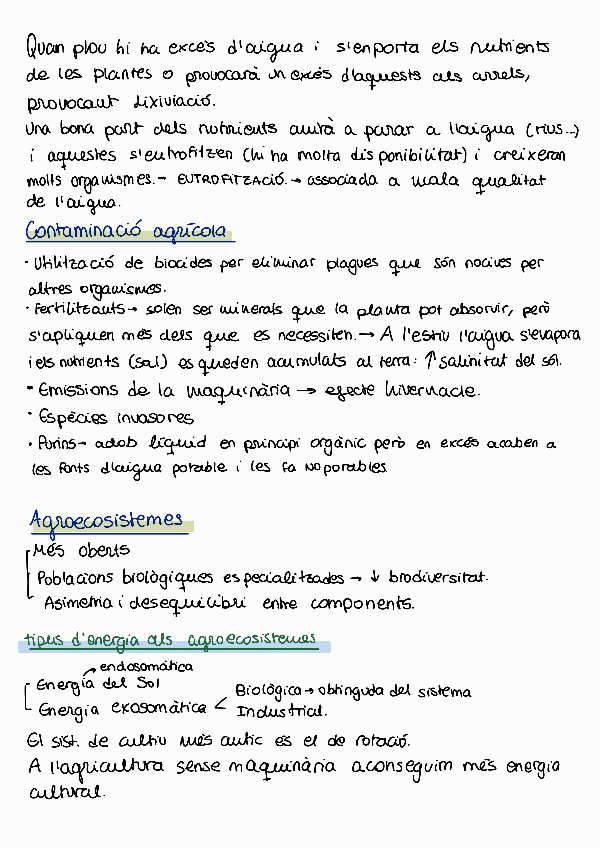 Quan plou hi ha excés d'aigua i s'enporta els nutrients
de les plantes o provocarà un excés d'aquests als arrels,
provocant lixiviació.
Una bona part dels nutrients anirà a parar a l'aigua (rius...)
i aquestes s'eutrofitzen (hi ha molta disponibilitat) i creixeran
molts organismes.- EUTROFITZACIÓ.→ associada a mala qualitat
de l'aigua.
Contaminació agrícola
· Utilització de biocides per eliminar plagues que són nocives per
altres organismes.
· Fertilitzants→ solen ser minerals que la planta pot absorvir, però
s'apliquen més dels que es necessiten.→ A l'estiu l'aigua s'evapora
i els nutrients (sal) es queden acumulats al terra: ↑ salinitat del sòl.
· Emissions de la maquinària → efecte hivernacle.
· Espècies invasores
· Purins- adob líquid en principi orgànic però en excés acaben a
les fonts d'aigua potable i les fa no potables.
Agroecosistemes
Més oberts
Poblacions biològiques especialitzades → ↓ biodiversitat.
Asimetria i desequilibri entre components.
tipus d'energia als agroecosistemes
→ endosomàtica
Energía del Sol
Biològica → obtinguda del sistema
Energia exosomàtica <
Industrial.
El sist. de cultiu més antic és el de rotació.
A l'agricultura sense maquinària aconseguim més energia
cultural.